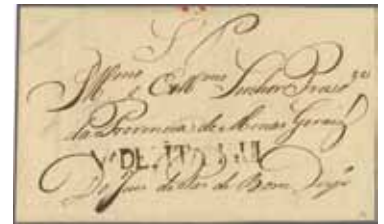 S P
Illmo e Exmo Senhor Preside
da Provincia de Minas Geraes
Va DE ITAGUI
Do Juiz de Paz de Bom